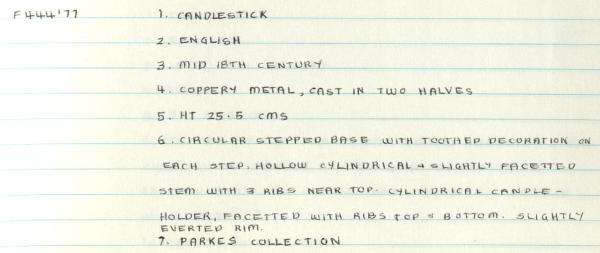 F444'77 1. CANDLESTICK
2. ENGLISH
3. MID 18TH CENTURY
4. COPPERY METAL, CAST IN TWO HALVES
5. HT 25.5 CMS
6. CIRCULAR STEPPED BASE WITH TOOTHED DECORATION ON
EACH STEP. HOLLOW CYLINDRICAL & SLIGHTLY FACETTED
STEM WITH 3 RIBS NEAR TOP. CYLINDRICAL CANDLE-
HOLDER, FACETTED WITH RIBS TOP & BOTTOM. SLIGHTLY
EVERTED RIM.
7. PARKES COLLECTION